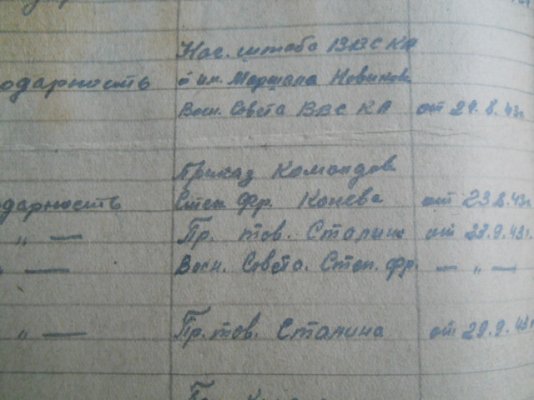 Нач. штаба ВВС КА
одарность от им. Маршала Новикова
Воен. Совета ВВС КА от 24.8.43г.
Приказ Командов
дарность Степ. Фр. Конева от 23.8.43г
" — Пр. тов. Сталина от 23.9.43г.
" — Воен. Совета. Степ. фр. — " —
" — Пр. тов. Сталина от 29.9.43г